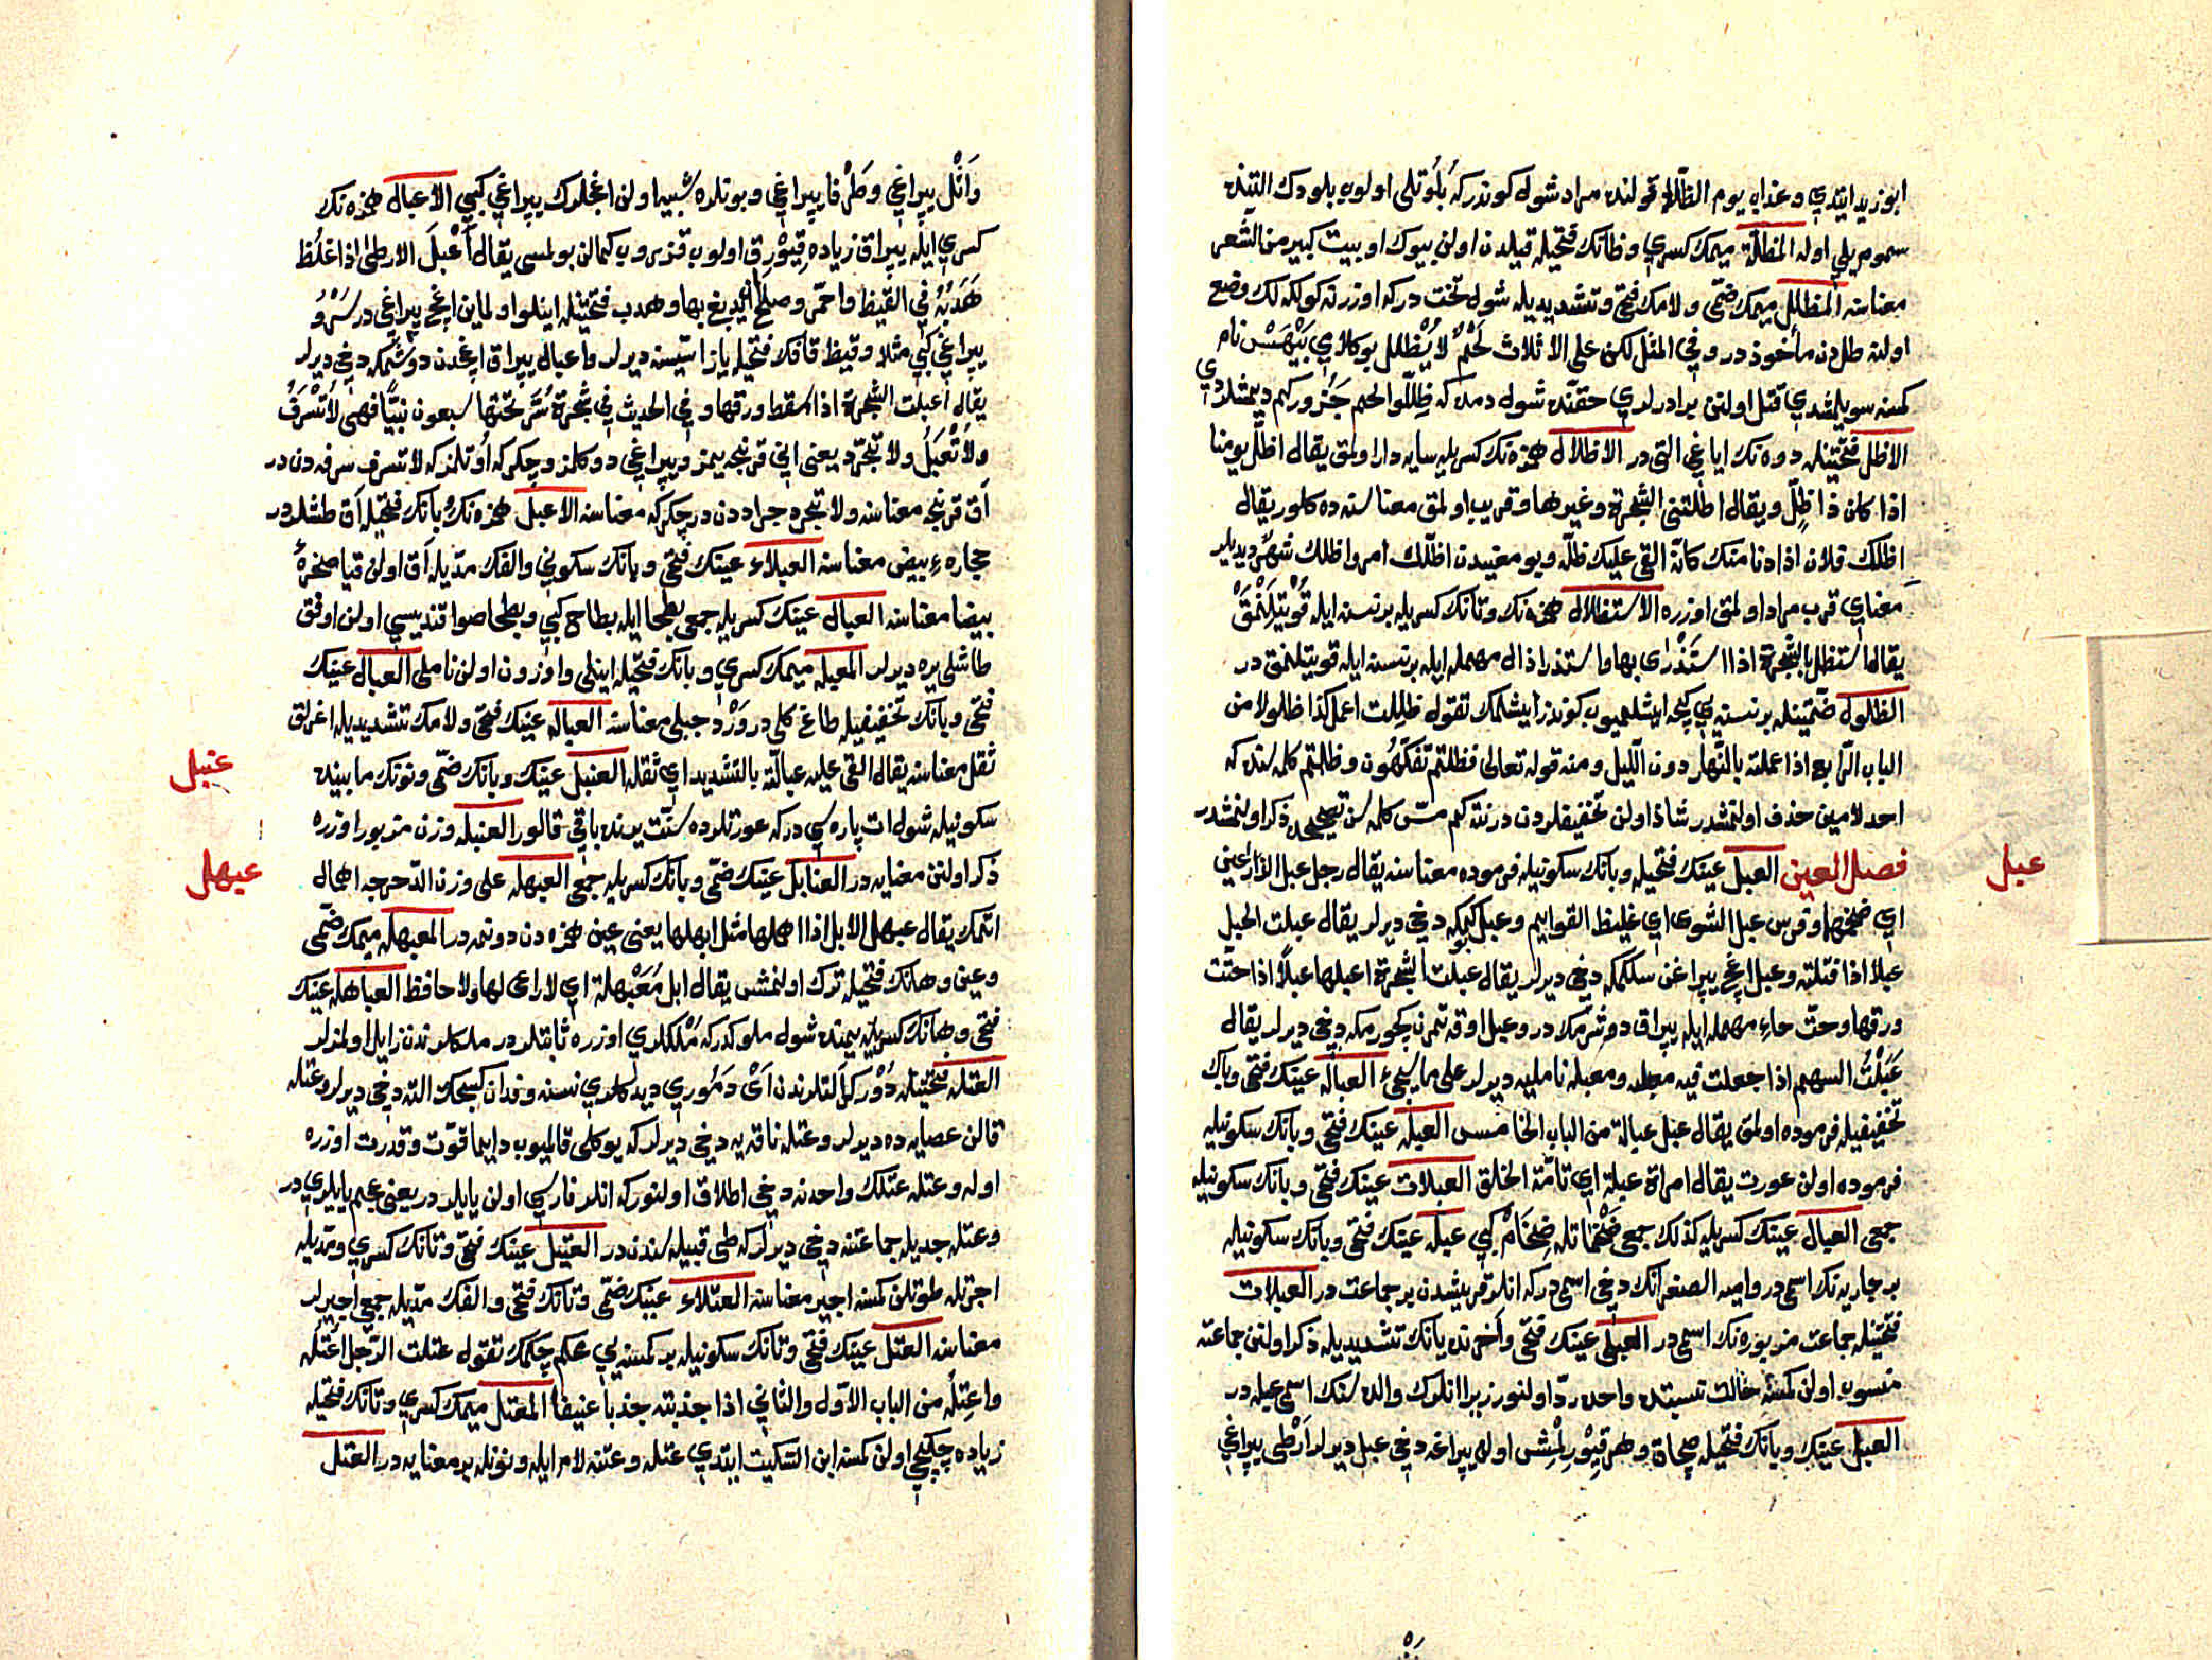 ابو زيد ايتدي وعذاب يوم الظلّة قولنده مراد شوله كوندر كه بلوتلى اولوب بلودك التينده
سموم يلي اوله المظلّة ميمك كسري وظانك فتحيله قيلدن اولن بيوك او بيت كبير من الشعر
معناسنه المظلل ميمك ضمّى ولامك فتحى وتشديديله شوله تخت در كه اوزرنه كولكه لك وضع
اولنه ظل دن مأخوذ در وفي المثل لكن على الاثلاث لَحْمٌ لا يُظلل بو كلامي بَيْهَسْ نام
كمسنه سويلمشدي قتل اولنن برادرلري حقنده شوله دمده كه ظلّلوا لحم جَزُوركم ديمشلردي
الاظل فتحتينله دوه نك اياغي التى در الاظلال همزه نك كسريله سايه دار اولمق يقال اظلّ يومنا
اذا كان ذا ظِلّ ويقال اظلّتنى الشجرة وغيرها وقريب اولمق معناسنه ده كلور يقال
اظلك فلان اذا دنا منك كانّه القى عليك ظلّه وبو معنيدن اظلّك امر واظلك شهر ديديلر
معناي قرب مراد اولمق اوزره الاستظلال همزه نك وتانك كسريله بر نسنه ايله قُويْتيلَنْمَقْ
يقال استظل بالشجرة اذا استَذْرَى بها واستذرا ذال مهمله ايله بر نسنه ايله قويتيلنمق در
الظلول ضمّتينله بر نسنه يي كيجه ايشلميوب كوندز ايشلمك تقول ظللت اعمل كذا ظلولا من
الباب الرّابع اذا عملته بالنّهار دون اللّيل ومنه قوله تعالى فظلتم تفكّهُون وظلتم كلمه سنده كه
احد لامين حذف اولنمشدر شاذ اولن تخفيفلردن در نته كم مسّ كلمه سن توضيحده ذكر اولنمشدر
فصل العين العبل عينك فتحيله وبانك سكونيله فرموده معناسنه يقال رجل عبل الذّراعين
اي ضخمهما وفرس عبل الشوى اي غليظ القوايم وعبل بوكمكه دخي ديرلر يقال عبلت الحبل
عبلا اذا فتلته وعبل اغج يپراغن سلكمكه دخي ديرلر يقال عبلت الشجرة اعبلها عبلًا اذا حتّت
ورقها وحتّ حاء مهمله ايله يپراق دوشرمكه در وعبل اوقه تمرن كچورمكه دخي ديرلر يقال
عَبَلْتُ السهم اذا جعلت فيه معبله ومعبله ناملينه ديرلر على ما سيجيء العباله عينك فتحى وبانك
تخفيفيله فرموده اولمق يقال عبل عبالة من الباب الخامس العبله عينك فتحى وبانك سكونيله
فرموده اولن عورت يقال امراة عبلة اي تامّة الخلق العبلات عينك فتحى وبانك سكونيله
جمعى العبال عينك كسريله كذلك جمعى ضَخْمَاتله ضِخَامْ كبي عبله عينك فتحى وبانك سكونيله
بر جاريه نك اسمى در واميه الصغرانك دخي اسمى در كه انلر قريشدن بر جماعت در العبلات
فتحتينله جماعت مزبوره نك اسمى در العبلى عينك فتحى واخرنده يانك تشديديله ذكر اولنن جماعته
منسوب اولن كمسنه حالت نسبتده واحده ردّ اولنور زيرا انلرك والده سنك اسمى عبله در
العبل عينك وبانك فتحيله جماة وهر قِيْورِلْمِشْ اوله يپراغه دخي عبل ديرلر اَرْطَى يپراغي
عبل
وَاَثْل يپراغي وطَرْفا يپراغي وبونلره شبيه اولن اغجلرك يپراغي كبي الاعبال همزه نك
كسري ايله يپراق زياده قِيْوْرِق اولوب قزروب كمالن بولمسى يقال اَعْبلَ الارطى اذا غلُظ
هَدَبُهُ في القيظ واحمّر وصلح ان يدبغ بها وهدب فتحتينله اينلو اولماين اغج يپراغى در سَرْوُ
يپراغي كبي مثلا وقيظ قافك فتحيله ياز استيسنه ديرلر واعبال يپراق اغجدن دوشمكه دخي ديرلر
يقال اعبلت الشجرة اذا سقط ورقها وفي الحديث في شجرة سُرَّ تحتها سبعون نبيًّا فهى لا تُسْرَفُ
ولا تُعْبَلُ ولا تُجرّد يعنى اني قرنجه يمز ويپراغي دوكلمز وچكركه اُوتلمز كه لا تسرف سرفه دن در
اق قرنجه معناسنه ولا تجرد جراددن در چكركه معناسنه الاعبل همزه نك وبانك فتحيله اق طشلردر
حجاره ء بيض معناسنه العبلاء عينك فتحى وبانك سكوني والفك مدّيله اق اولن قيا صخرهٔ
بيضا معناسنه العبال عينك كسريله جمعى بطحا ايله بطاح كبي وبطحا صو اقندیسي اولن اوفق
طاشلى يره ديرلر المعبله ميمك كسري وبانك فتحيله اينلى واوزون اولن ناملى العبال عينك
فتحى وبانك تخفيفيله طاغ كلى در وَرْد جبلى معناسنه العباله عينك فتحى ولامك تشديديله اغرلق
ثقل معناسنه يقال القى عليه عبالّته بالتشديد اي ثقله العنبل عينك وبانك ضمّى ونونك مابينده
سكونيله شوله ات پاره سي در كه عورتلرده سنّت يرنده باقي قالور العنبله وزن مزبور اوزره
ذكر اولنن معنايه در العنابل عينك ضمّى وبانك كسريله جمعى العبهله على وزن الدّحرجه اهمال
اتمك يقال عبهل الابل اذا اهملها مثل ابهلها يعنى عين همزه دن دونمه در المعبهله ميمك ضمّى
وعين وهانك فتحيله ترك اولنمش يقال ابل مُعَبْهلة اي لا راعى لها ولا حافظ العباهله عينك
فتحى وهانك كسريله يمنده شوله ملوكدر كه مُلْكلري اوزره ثابتلردر ملكلرندن زايل اولمزلر
العتله فتحتينله دُوْركر التلرندن اَىْ دَمُوري ديدكلري نسنه وفدان كسجك التنه دخي ديرلر وعتله
قالن عصايه ده ديرلر وعتله ناقه يه دخي ديرلر كه يوكلى قالميوب دايما قوّت وقدرت اوزره
اوله وعتله عتلك واحدنه دخي اطلاق اولنور كه انلر فارسي اولن يايلردر يعنى عجم يايلري در
وعتله جديله جماعتنه دخي ديرلر كه طى قبيله سندن در العتيل عينك فتحى وتانك كسري ومدّيله
اجرتله طوتلن كمسنه اجير معناسنه العتلاء عينك ضمّى وتانك فتحى والفك مدّيله جمعى اجيرلر
معناسنه العتل عينك فتحى وتانك سكونيله بر كمسنه يي محكم چكمك تقول عتلت الرّجل اعتُله
واعتِله من الباب الاوّل والثاني اذا جذبته جذبا عنيفا المعتل ميمك كسري وتانك فتحيله
زياده چكيجي اولن كمسنه ابن السّكيت ايتدي عتله وعتنه لام ايله ونونله بر معنايه در العتل
عنبل
عبهل